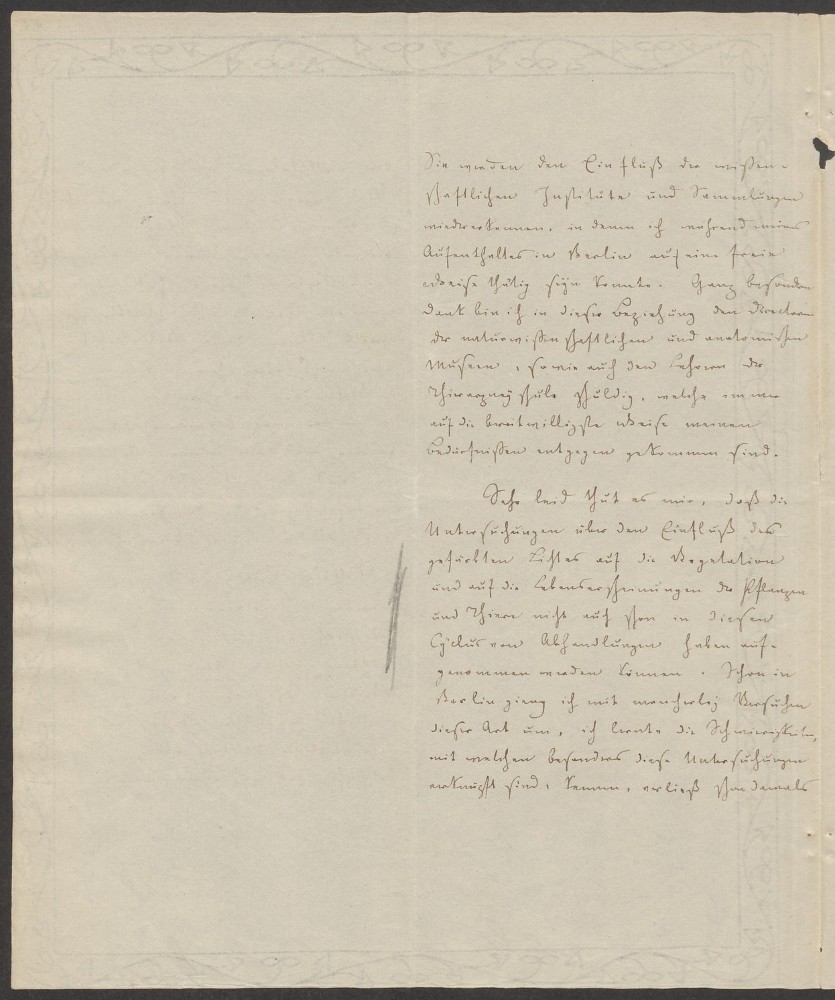 Sie werden den Einfluß der wissen-
schaftlichen Institute und Sammlungen
wiedererkennen, in denen ich während meines
Aufenthaltes in Berlin auf eine freie
Weise thätig seyn konnte. Ganz besondern
Dank bin ich in dieser Beziehung den Directoren
der naturwissenschaftlichen und anatomischen
Museen, sowie auch den Lehrern der
Thierarzneyschule schuldig, welche immer
auf die bereitwilligste Weise meinen
Bedürfnissen entgegen gekommen sind.
Sehr leid thut es mir, daß die
Untersuchungen über den Einfluß des
gefärbten Lichtes auf die Vegetation
und auf die Lebenserscheinungen der Pflanzen
und Thiere nicht auch schon in diesen
Cyclus von Abhandlungen haben auf-
genommen werden können. Schon in
Berlin gieng ich mit mancherley Versuchen
dieser Art um, ich lernte die Schwierigkeiten,
mit welchen besonders diese Untersuchungen
verknüpft sind, kennen, verließ schon damals